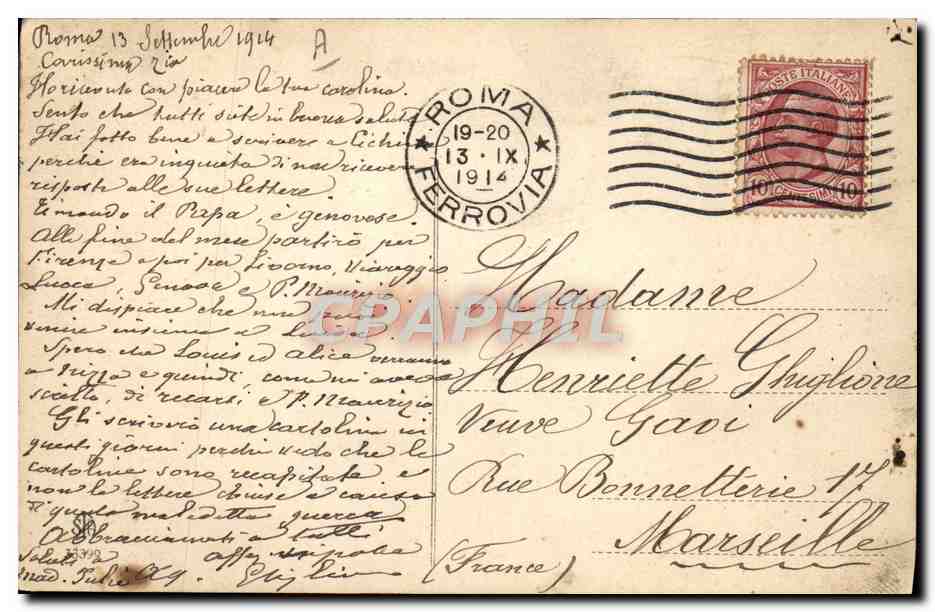 Roma 13 Settembre 1914
A
Carissima zia
Ho ricevuto con piacere la tua carolina.
Sento che tutti siete in buona salute
Hai fatto bene a scrivere a
perché era inquieta di non ricevere
risposte alle sue lettere
il Papa, è genovese
Alla fine del mese partirò per
Firenze e poi per Livorno, Viareggio
Lucca, Genova e P. Maurizio
Mi dispiace che non
venire insieme a
Spero che Louis ed Alice verranno
a Nizza e quindi, come mi aveva
scritto, di recarsi a P. Maurizio
Gli scriverò una cartolina in
questi giorni perché vedo che le
cartoline sono recapitate e
non le lettere chiuse a causa
di questa maledetta guerra
Abbracciamoti a tutti
Saluti a
mad. Julie
aff nipote
ROMA
19-20
13·IX
1914
FERROVIA
POSTE ITALIANE
10 CENTESIMI 10
Madame
Henriette Ghiglione
Veuve Gavi
Rue Bonnetterie 17
Marseille
(France)
CPAPHIL